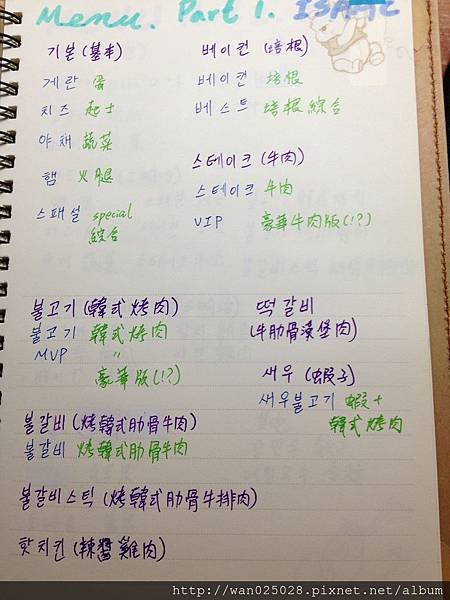 Menu. Part 1. ISAAC
기본 (基本)
게란 蛋
치즈 起士
야채 蔬菜
햄 火腿
스패셜 special
綜合
베이컨 (培根)
베이컨 培根
베스트 培根綜合
스테이크 (牛肉)
스테이크 牛肉
VIP 豪華牛肉版(!?)
불고기 (韓式烤肉)
불고기 韓式烤肉
MVP 〃
豪華版(!?)
불갈비 (烤韓式肋骨牛肉)
불갈비 烤韓式肋骨牛肉
불갈비스틱 (烤韓式肋骨牛排肉)
핫치킨 (辣醬雞肉)
떡갈비
(牛肋骨漢堡肉)
새우 (蝦子)
새우불고기 蝦+
韓式烤肉
http://wan025028.pixnet.net/album